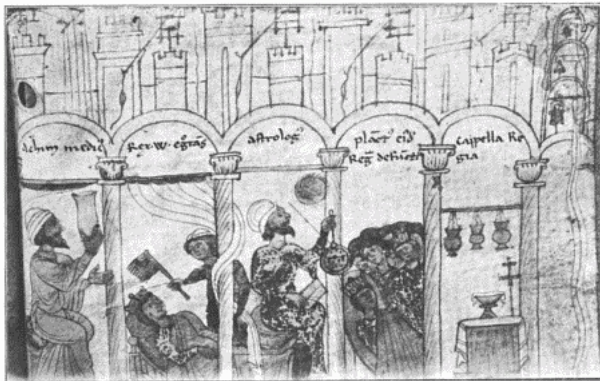 Achim medic'
Rex .W. egͦtās
astrolog'
planct'
Reḡ defūcti
Cappella Re
gia